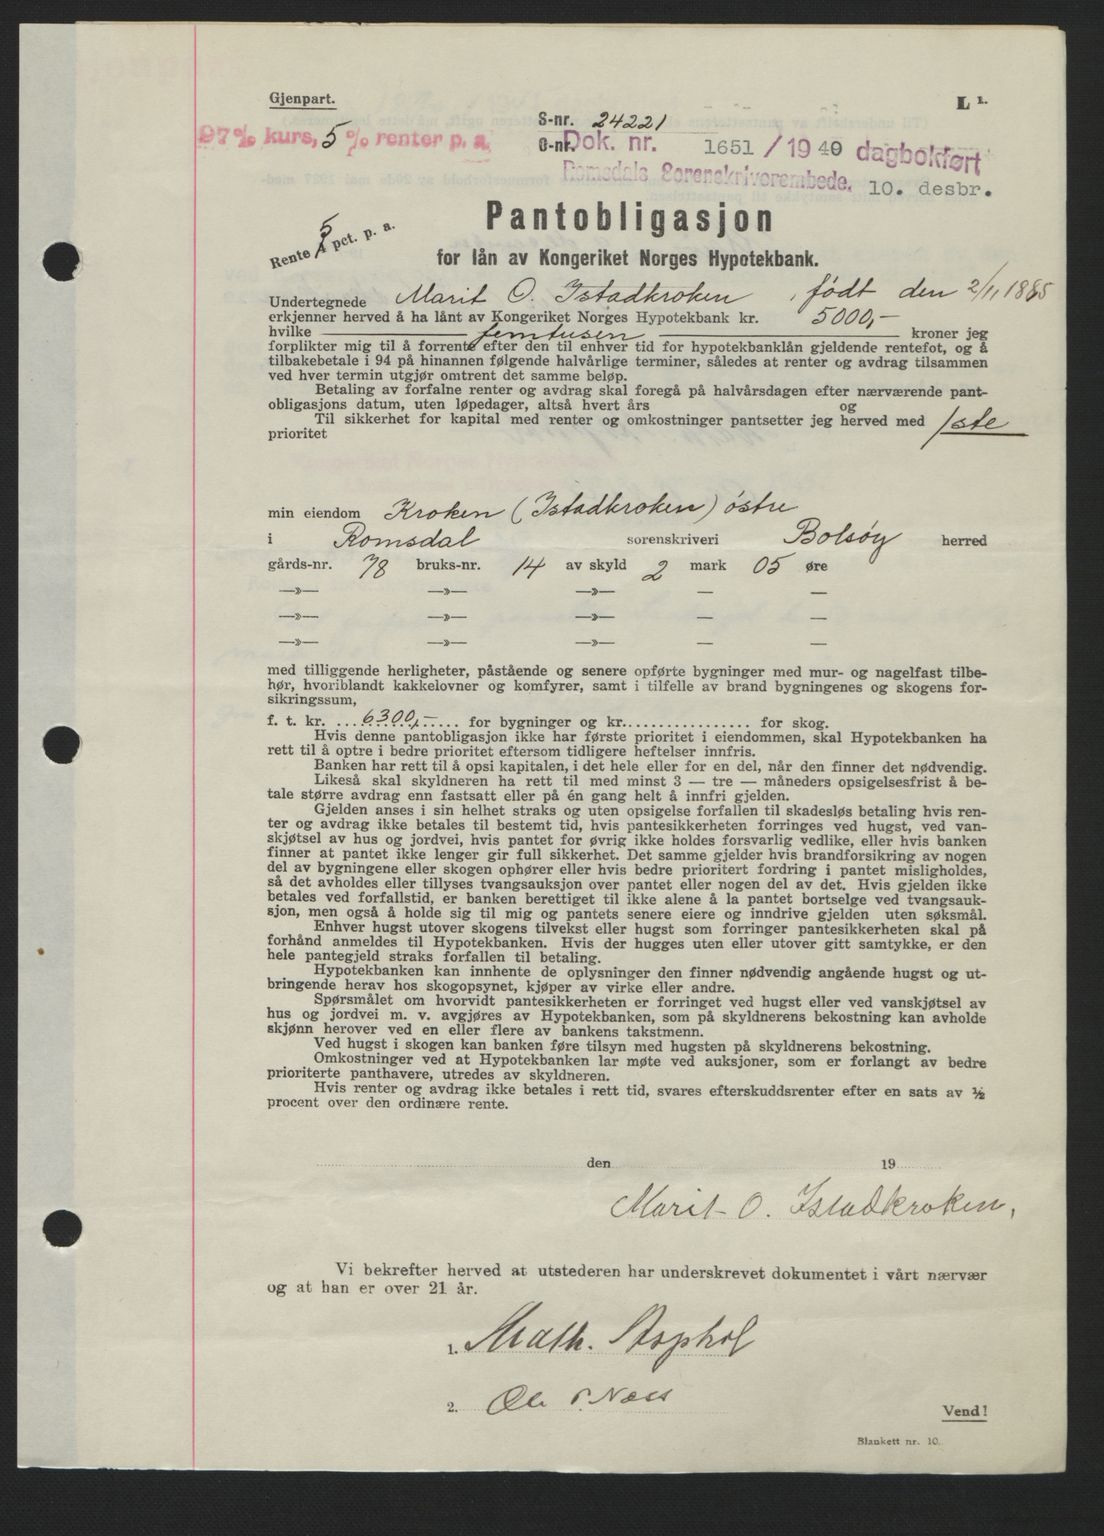 Gjenpart.
L 1.
S-nr. 24221
97% kurs, 5% renter p. a.
O-nr. Dok. nr. 1651 / 1940 dagbokført
Romsdals Sorenskriverembede. 10. desbr.
Pantobligasjon
Rente 5 pct. p. a.
for lån av Kongeriket Norges Hypotekbank.
Undertegnede Marit O. Istadkroken, født den 2/11 1885
erkjenner herved å ha lånt av Kongeriket Norges Hypotekbank kr. 5000,-
hvilke — femtusen — kroner jeg
forplikter mig til å forrente efter den til enhver tid for hypotekbanklån gjeldende rentefot, og å
tilbakebetale i 94 på hinannen følgende halvårlige terminer, således at renter og avdrag tilsammen
ved hver termin utgjør omtrent det samme beløp.
Betaling av forfalne renter og avdrag skal foregå på halvårsdagen efter nærværende pant-
obligasjons datum, uten løpedager, altså hvert års og
Til sikkerhet for kapital med renter og omkostninger pantsetter jeg herved med 1ste
prioritet
min eiendom Kroken (Istadkroken) østre
i Romsdal sorenskriveri Bolsøy herred
gårds-nr. 78 bruks-nr. 14 av skyld 2 mark 05 øre
—»— —»— —»— — —
—»— —»— —»— — —
—»— —»— —»— — —
med tilliggende herligheter, påstående og senere opførte bygninger med mur- og nagelfast tilbe-
hør, hvoriblandt kakkelovner og komfyrer, samt i tilfelle av brand bygningenes og skogens for-
sikringssum,
f. t. kr. ...6300,-..... for bygninger og kr................. for skog.
Hvis denne pantobligasjon ikke har første prioritet i eiendommen, skal Hypotekbanken ha
rett til å optre i bedre prioritet eftersom tidligere heftelser innfris.
Banken har rett til å opsi kapitalen, i det hele eller for en del, når den finner det nødvendig.
Likeså skal skyldneren ha rett til med minst 3 — tre — måneders opsigelsesfrist å be-
tale større avdrag enn fastsatt eller på én gang helt å innfri gjelden.
Gjelden anses i sin helhet straks og uten opsigelse forfallen til skadesløs betaling hvis ren-
ter og avdrag ikke betales til bestemt tid, hvis pantesikkerheten forringes ved hugst, ved van-
skjøtsel av hus og jordvei, hvis pantet for øvrig ikke holdes forsvarlig vedlike, eller hvis banken
finner at pantet ikke lenger gir full sikkerhet. Det samme gjelder hvis brandforsikring av nogen
del av bygningene eller skogen ophører eller hvis bedre prioritert fordring i pantet misligholdes,
så det avholdes eller tillyses tvangsauksjon over pantet eller nogen del av det. Hvis gjelden ikke
betales ved forfallstid, er banken berettiget til ikke alene å la pantet bortselge ved tvangsauk-
sjon, men også å holde sig til mig og pantets senere eiere og inndrive gjelden uten søksmål.
Enhver hugst utover skogens tilvekst eller hugst som forringer pantesikkerheten skal på
forhånd anmeldes til Hypotekbanken. Hvis der hugges uten eller utover gitt samtykke, er den
hele pantegjeld straks forfallen til betaling.
Hypotekbanken kan innhente de oplysninger den finner nødvendig angående hugst og ut-
bringende herav hos skogopsynet, kjøper av virke eller andre.
Spørsmålet om hvorvidt pantesikkerheten er forringet ved hugst eller ved vanskjøtsel av
hus og jordvei m. v. avgjøres av Hypotekbanken, som på skyldnerens bekostning kan avholde
skjønn herover ved en eller flere av bankens takstmenn.
Ved hugst i skogen kan banken føre tilsyn med hugsten på skyldnerens bekostning.
Omkostninger ved at Hypotekbanken lar møte ved auksjoner, som er forlangt av bedre
prioriterte panthavere, utredes av skyldneren.
Hvis renter og avdrag ikke betales i rett tid, svares efterskuddsrenter efter en sats av ½
procent over den ordinære rente.
den 19
Marit O. Istadkroken,
Vi bekrefter herved at utstederen har underskrevet dokumentet i vårt nærvær
og at han er over 21 år.
1. Math. Asphol
2. Ole P. Næss
Vend!
Blankett nr. 10.